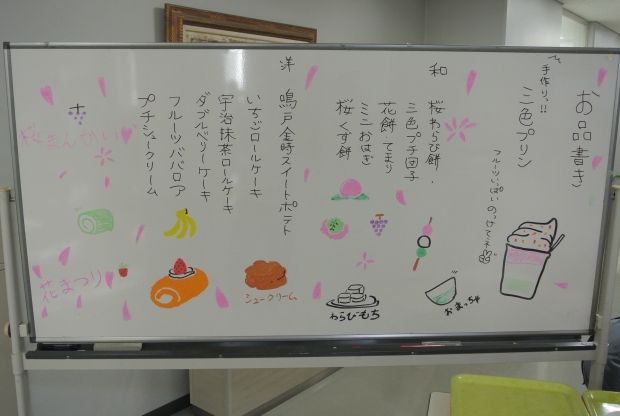 お品書き
手作りっ!!
三色プリン
フルーツいっぱいのっけてネ
和
桜わらび餅・
三色プチ団子
花餅・てまり
ミニおはぎ
桜くず餅
洋
鳴戸金時スイートポテト
いちごロールケーキ
宇治抹茶ロールケーキ
ダブルベリーケーキ
フルーツババロア
プチシュークリーム
桜まんかい
花まつり
シュークリーム
わらびもち
おまっちゃ